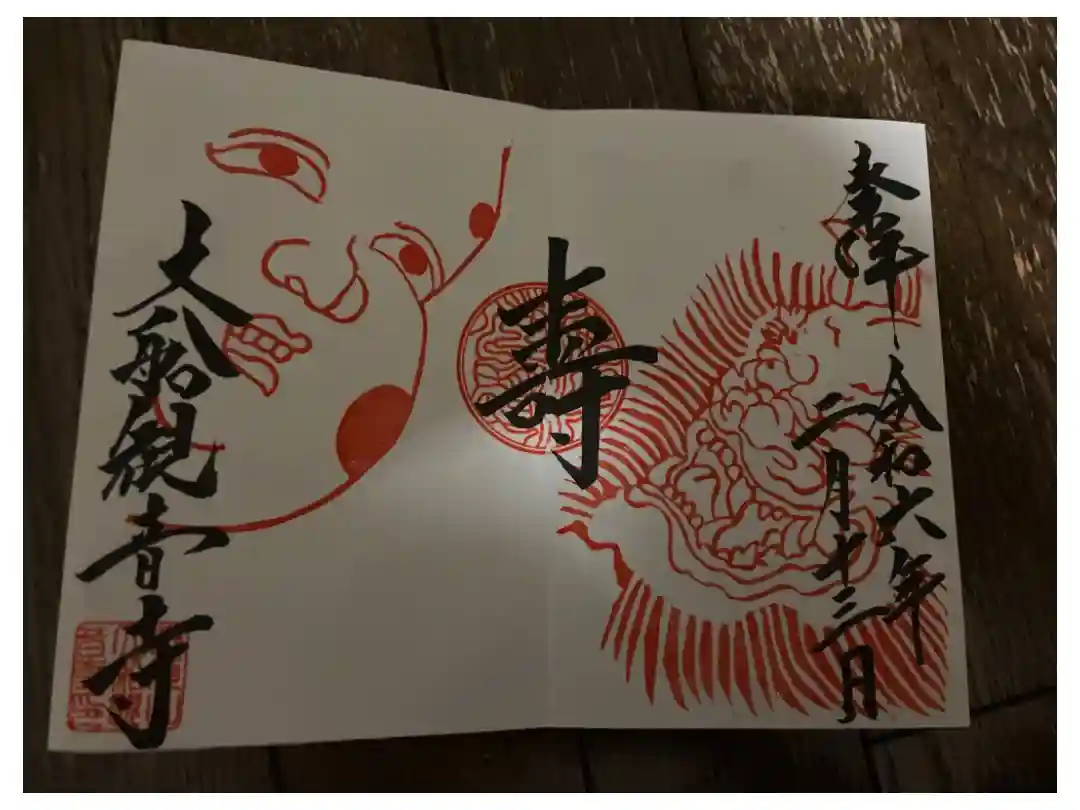 奉拝
令和六年
二月十三日
壽
大船観音寺